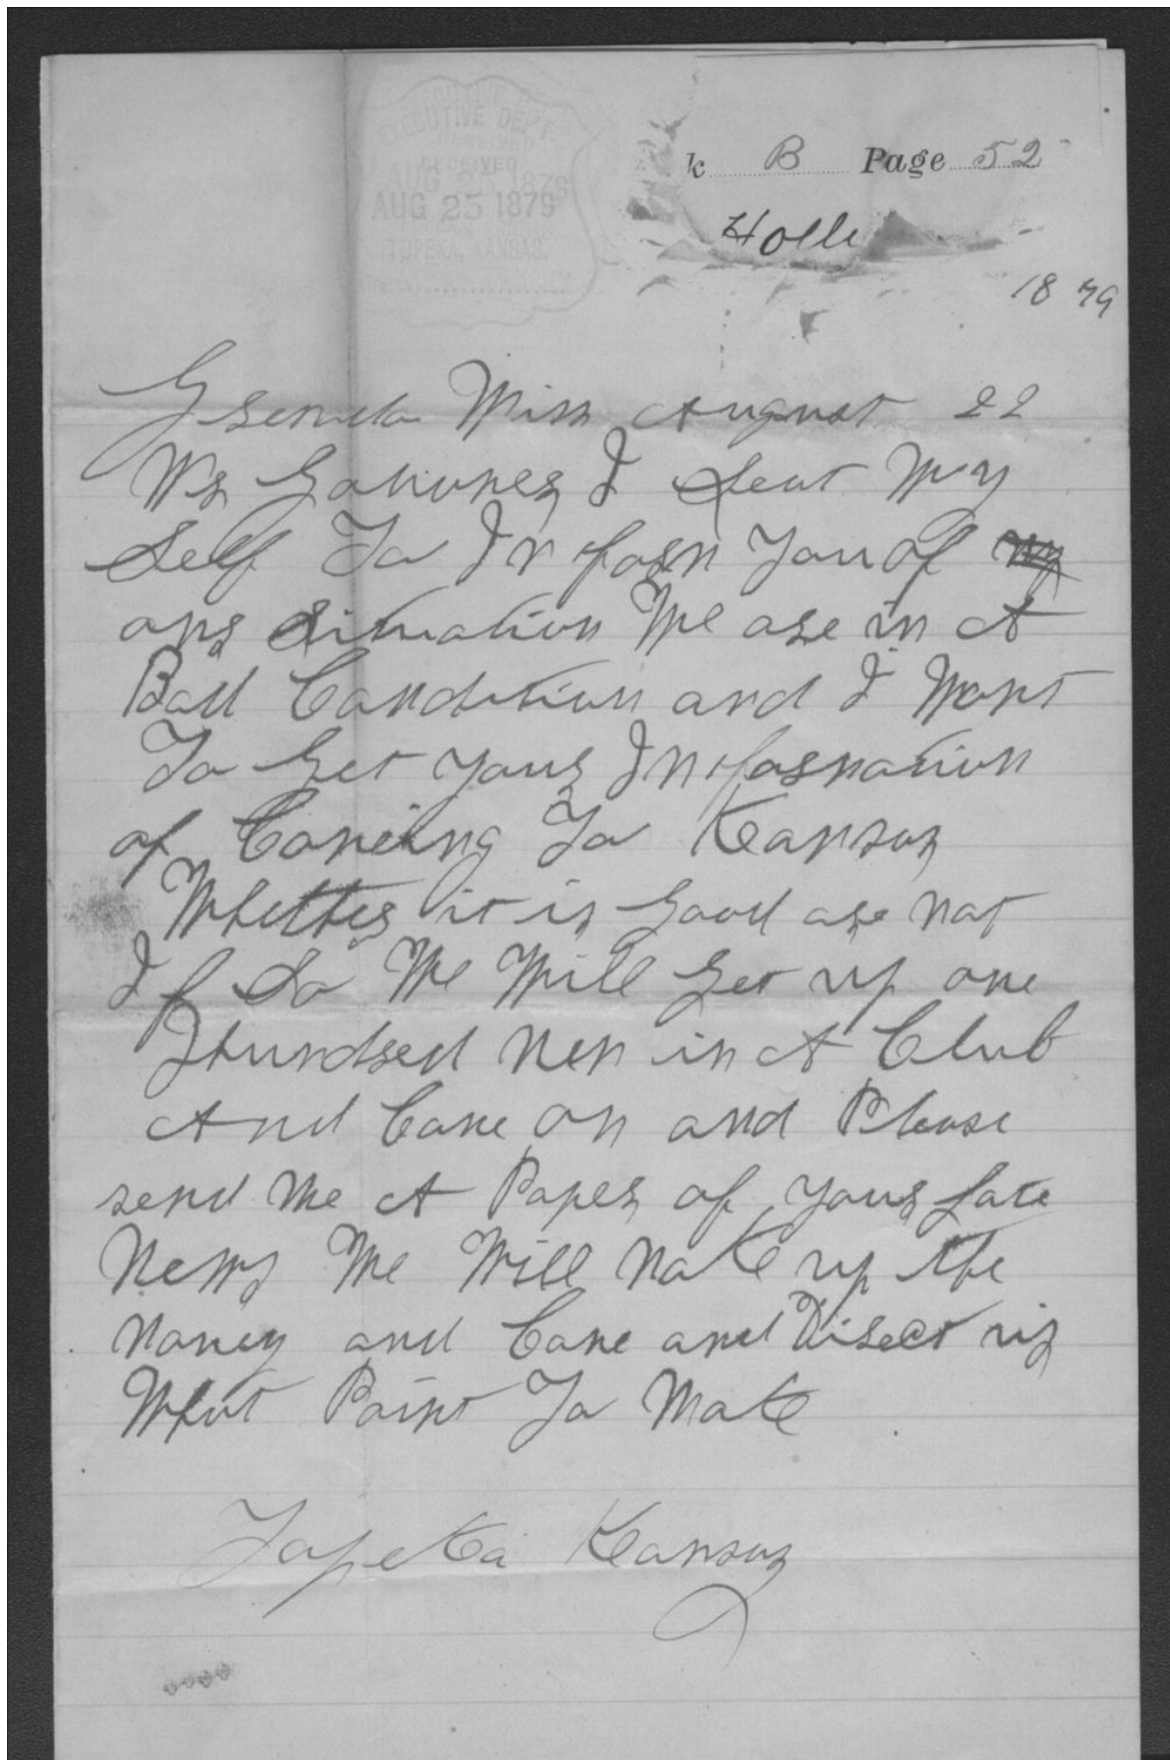 EXECUTIVE DEP'T
RECEIVED
AUG 25 1879
TOPEKA, KANSAS.
k B Page 52
Holli
1879
Grenada Miss August 22
Mr Govuner I Seat My
Self To In forn You of my
our Situation We are in A
Bad Condition and I Want
To Get your Infornation
of Coneing To Kansas
Whether it is Good are not
If So We Will Get up one
Hundred Men in A Club
And Cone on and Please
send Me A Paper of your late
News We Will Make up the
Money and Cone and Direct us
What Point To Make
Topeka Kansas